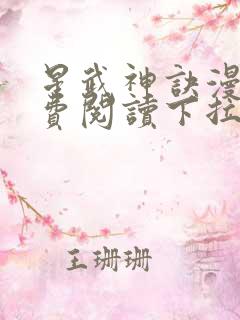 星武神訣漫
費閱讀下拉
王珊珊